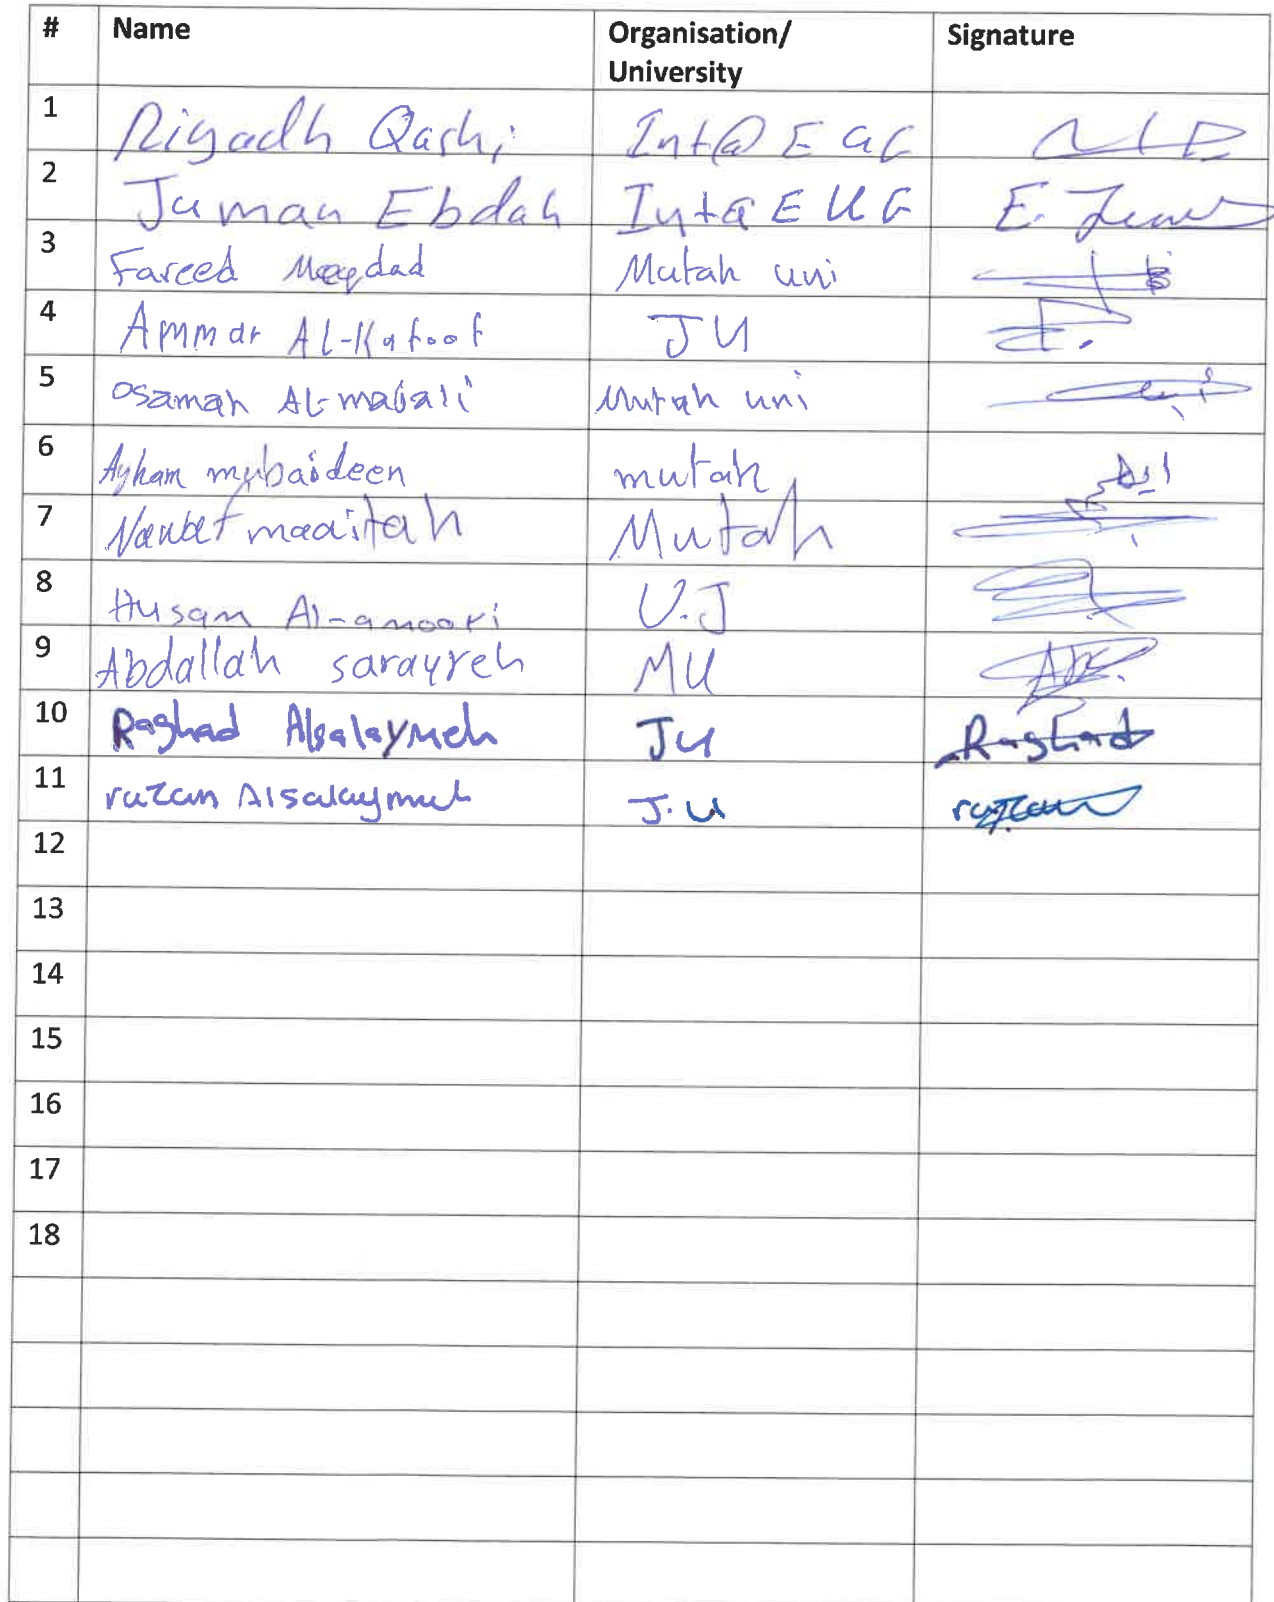 # Name Organisation/ University Signature
1 Riyadh Qashi Int@E UG
2 Juman Ebdah Int@E UG E. Juman
3 Fareed Meqdad Mutah uni
4 Ammar Al-Katoot JU
5 Osamah Al-majali Mutah uni
6 Ayham mubaideen mutah ايهم
7 maaitah Mutah
8 Husam Al-amoori U.J
9 Abdallah sarayreh MU
10 Raghad Alsalaymeh JU Raghad
11 razan Alsalaymeh J.U razan
12
13
14
15
16
17
18